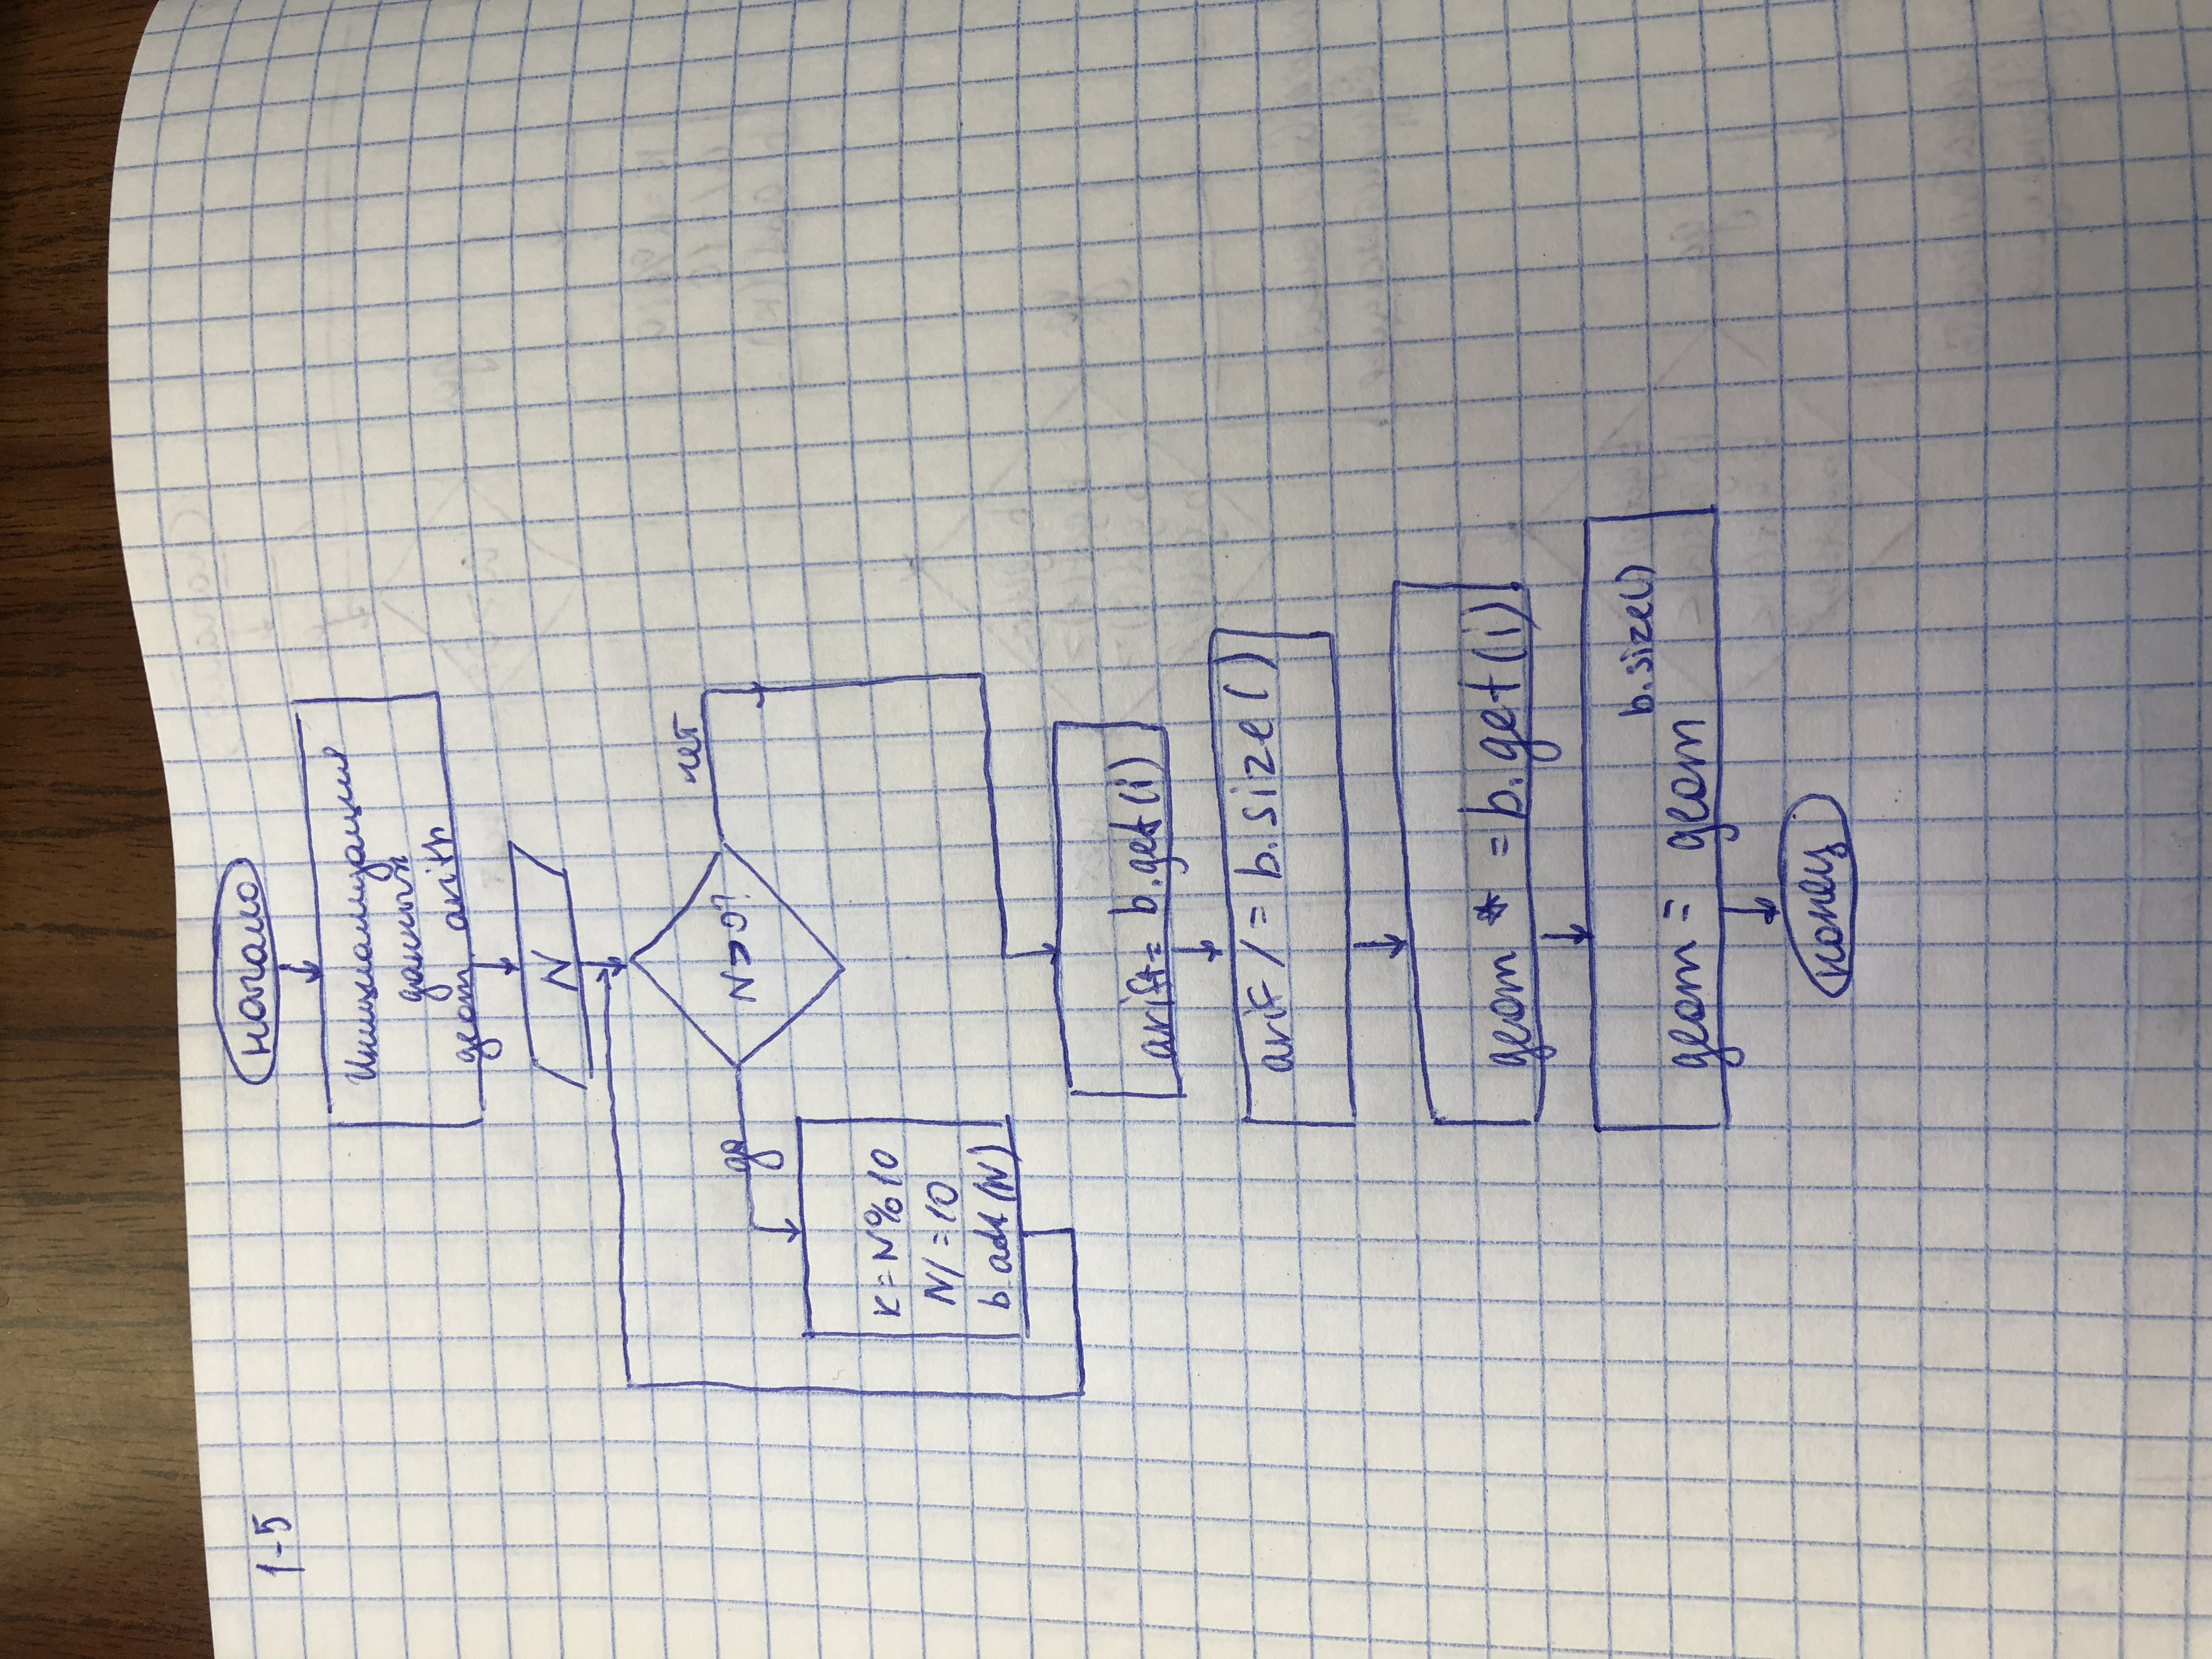 1-5
начало
Инициализация
данных
geom, arith
N
N>0?
да
нет
K=N%10
N/=10
b.add(N)
arift= b.get(i)
arif /= b.size()
geom * = b.get(i)
geom = geom b.size()
конец